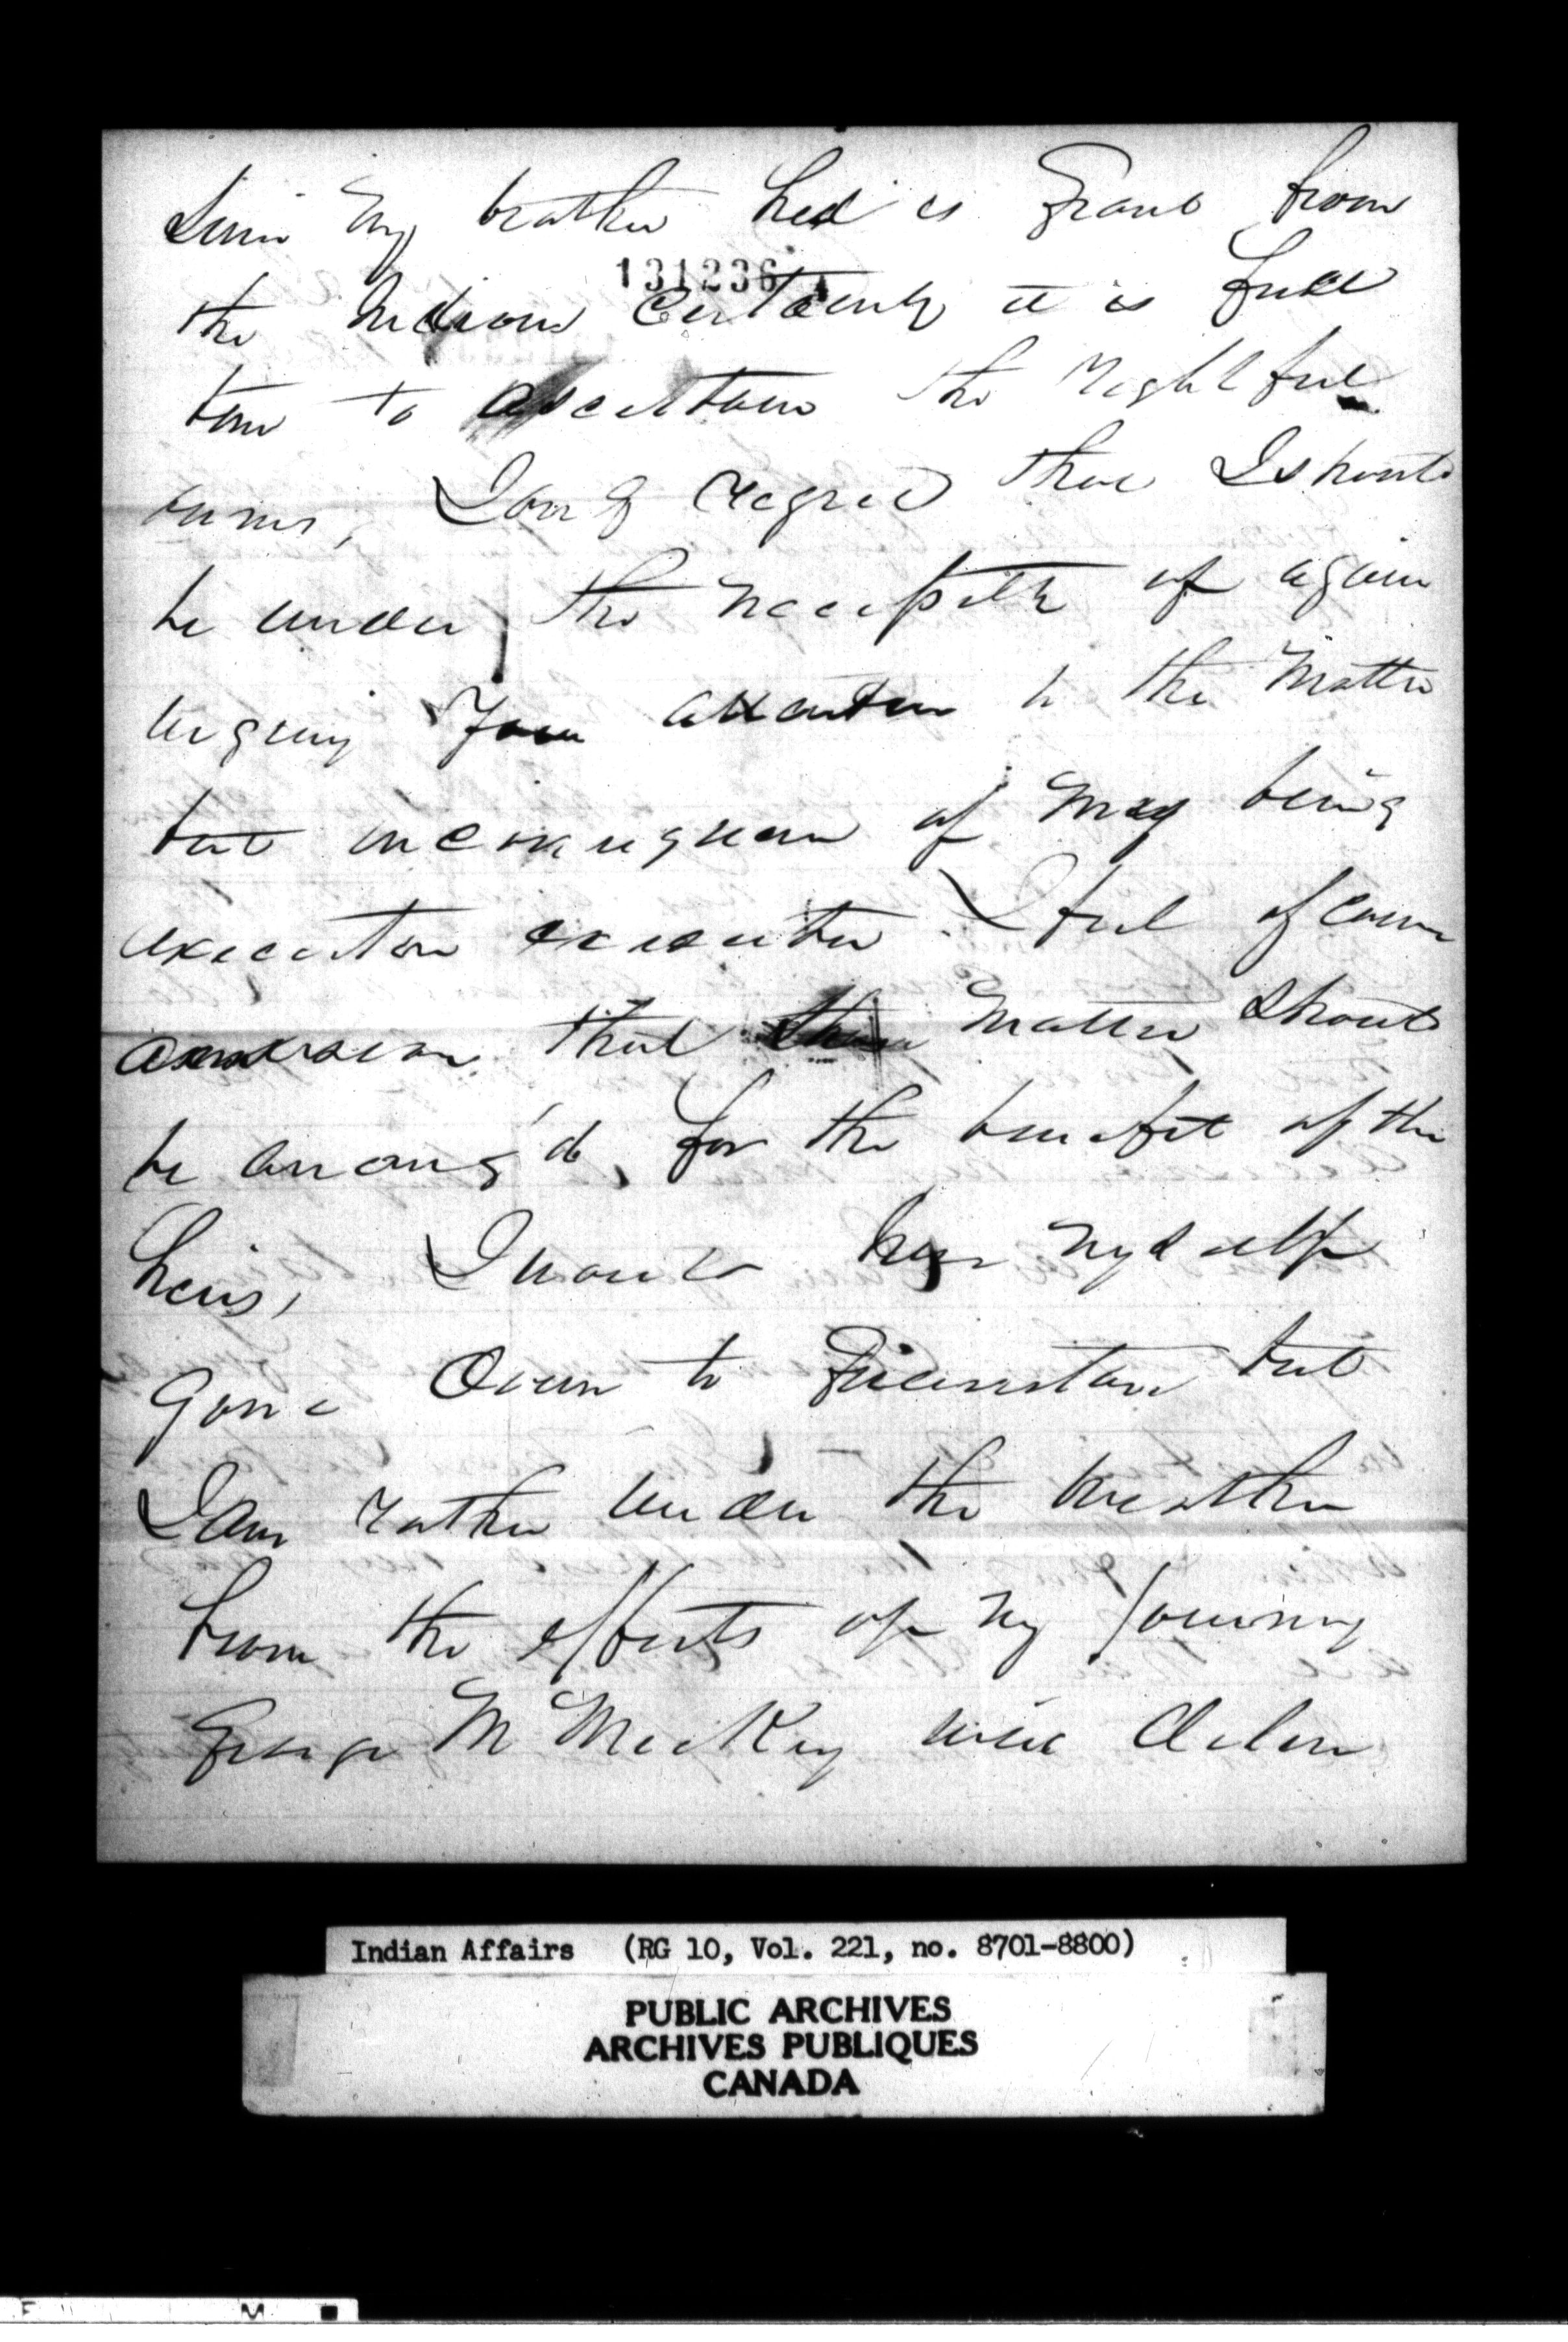 Since my brother had a Grant from
131236
the Indians Certainly it is full
time to ascertain the rightful
owner, I am of regret that I should
be under the necessity of again
urging your attention to the matter
but inconsequence of my being
executor I feel of course
anxious that matter should
be arrang'd, for the benefit of the
heirs, I would have myself
gone over to but
I am rather under the weather
from the effects of my journey
George M McKay will
Indian Affairs (RG 10, Vol. 221, no. 8701-8800)
PUBLIC ARCHIVES
ARCHIVES PUBLIQUES
CANADA